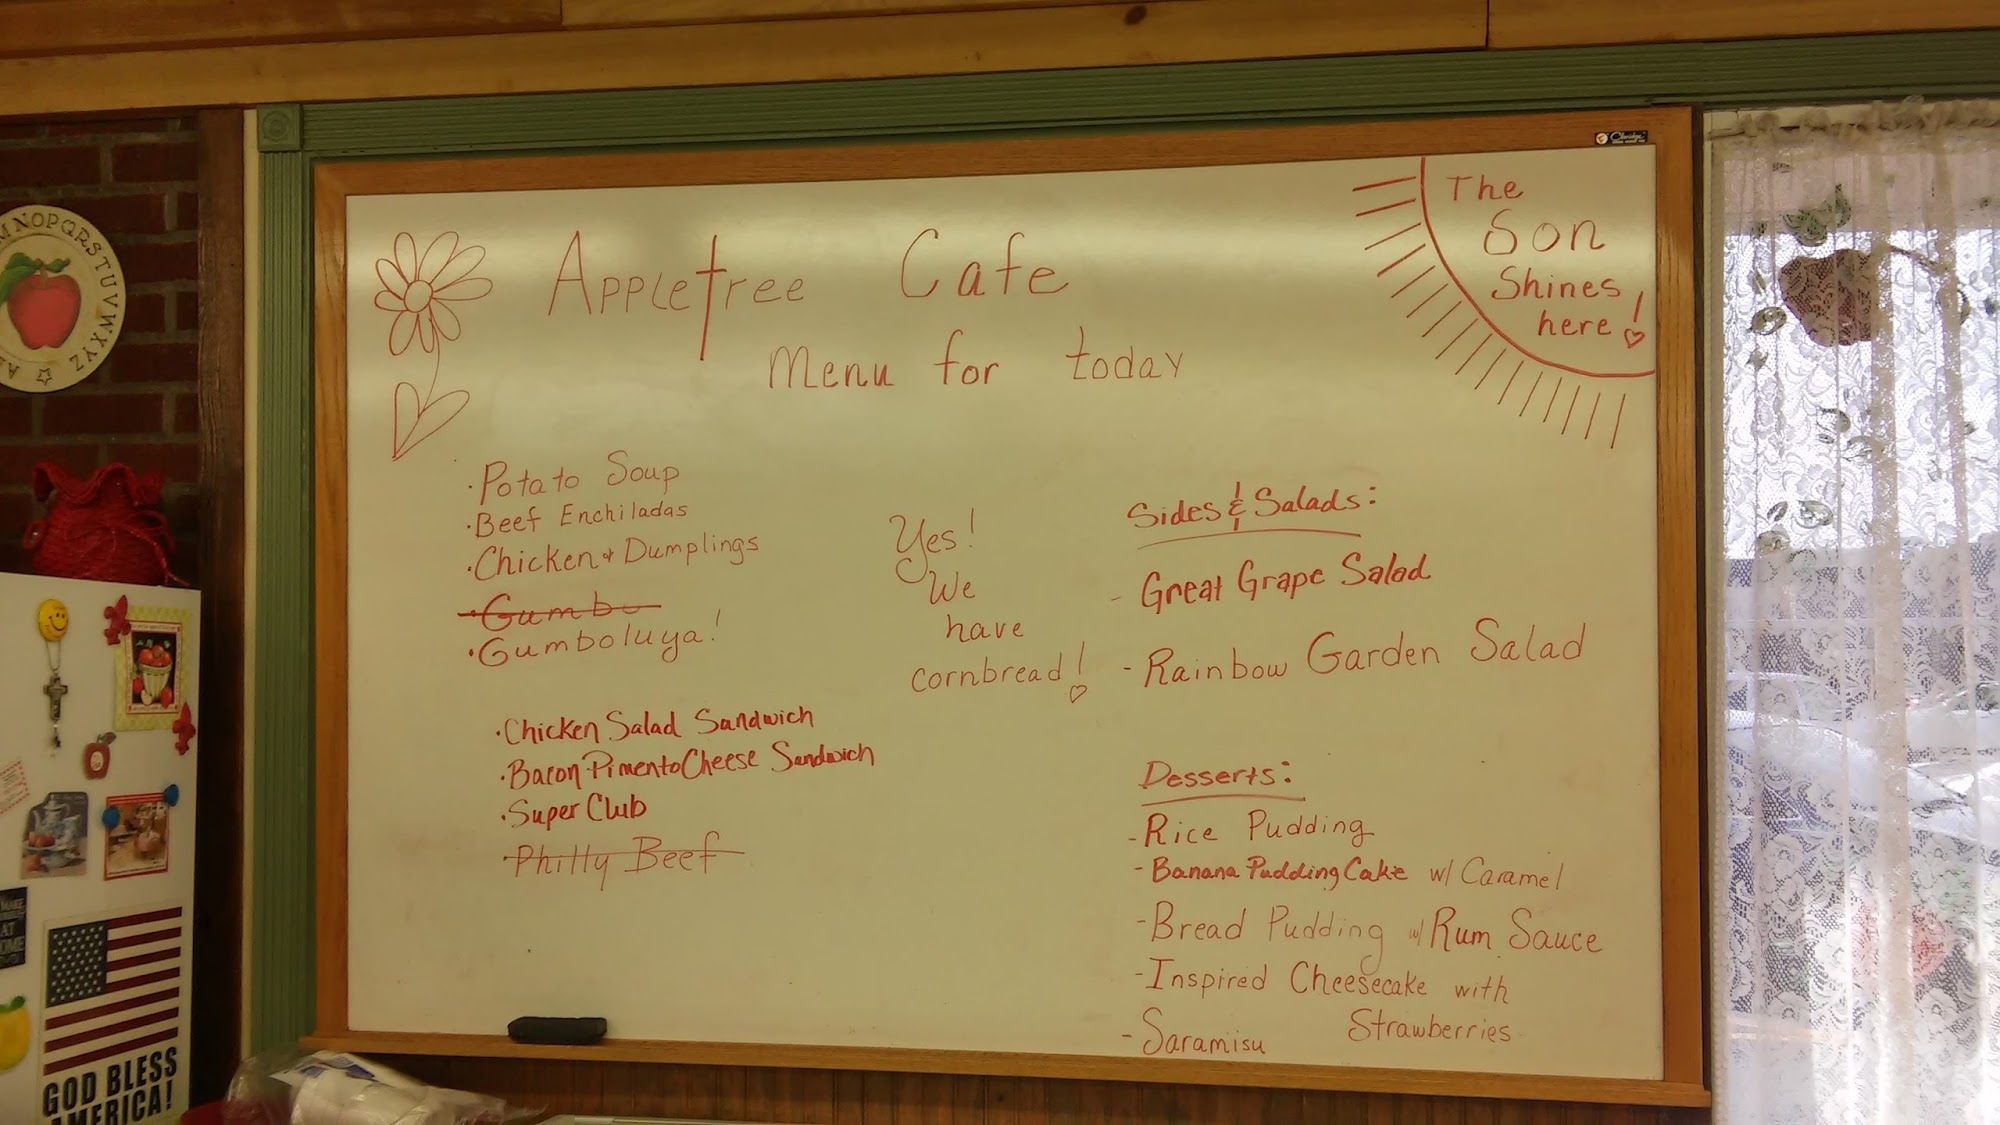 Appletree Cafe
Menu for today
The
Son
Shines
here!
· Potato Soup
· Beef Enchiladas
· Chicken & Dumplings
· Gumbo
· Gumboluya!
· Chicken Salad Sandwich
· Bacon Pimento Cheese Sandwich
· Super Club
· Philly Beef
Yes!
We
have
cornbread!
Sides & Salads:
- Great Grape Salad
- Rainbow Garden Salad
Desserts:
- Rice Pudding
- Banana Pudding Cake w/ Caramel
- Bread Pudding w/ Rum Sauce
- Inspired Cheesecake with
Strawberries
- Saramisu
MNOPQRSTUVWXYZ
GOD BLESS
AMERICA!